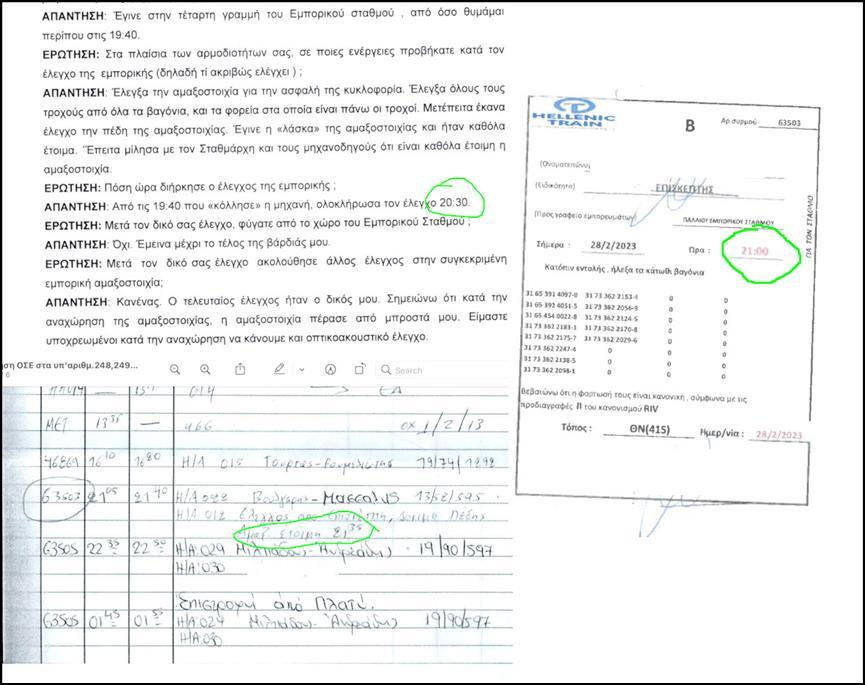 ΑΠΑΝΤΗΣΗ: Έγινε στην τέταρτη γραμμή του Εμπορικού σταθμού , από όσο θυμάμαι
περίπου στις 19:40.
ΕΡΩΤΗΣΗ: Στα πλαίσια των αρμοδιοτήτων σας, σε ποιες ενέργειες προβήκατε κατά τον
έλεγχο της εμπορικής (δηλαδή τί ακριβώς ελέγχει ) ;
ΑΠΑΝΤΗΣΗ: Έλεγξα την αμαξοστοιχία για την ασφαλή της κυκλοφορία. Έλεγξα όλους τους
τροχούς από όλα τα βαγόνια, και τα φορεία στα οποία είναι πάνω οι τροχοί. Μετέπειτα έκανα
έλεγχο την πέδη της αμαξοστοιχίας. Έγινε η «λάσκα» της αμαξοστοιχίας και ήταν καθόλα
έτοιμα. Έπειτα μίλησα με τον Σταθμάρχη και τους μηχανοδηγούς ότι είναι καθόλα έτοιμη η
αμαξοστοιχία.
ΕΡΩΤΗΣΗ: Πόση ώρα διήρκησε ο έλεγχος της εμπορικής ;
ΑΠΑΝΤΗΣΗ: Από τις 19:40 που «κόλλησε» η μηχανή, ολοκλήρωσα τον έλεγχο 20:30.
ΕΡΩΤΗΣΗ: Μετά τον δικό σας έλεγχο, φύγατε από το χώρο του Εμπορικού Σταθμού ;
ΑΠΑΝΤΗΣΗ: Όχι. Έμεινα μέχρι το τέλος της βάρδιάς μου.
ΕΡΩΤΗΣΗ: Μετά τον δικό σας έλεγχο ακολούθησε άλλος έλεγχος στην συγκεκριμένη
εμπορική αμαξοστοιχία;
ΑΠΑΝΤΗΣΗ: Κανένας. Ο τελευταίος έλεγχος ήταν ο δικός μου. Σημειώνω ότι κατά την
αναχώρηση της αμαξοστοιχίας, η αμαξοστοιχία πέρασε από μπροστά μου. Είμαστε
υποχρεωμένοι κατά την αναχώρηση να κάνουμε και οπτικοακουστικό έλεγχο.
ηση ΟΣΕ στα υπ'αριθμ.248,249...
Search
ΜΕΤ 13 35 — 466 οχ 1/2/13
46861 16 10 16 20 Η/Α 015 19/74/1292
63503 21 05 21 40 Η/Α 028 Βουλγαρης-Μασσαλης 13/52/595
Η/Α 012 Ελεγχος από επισκέπτη, δοκιμή Πέδης
Αμαξ έτοιμη 21 35
63505 22 35 22 50 Η/Α:029 19/90/597
Η/Α:030
Επιστροφή από Πλατύ.
63505 01 45 01 55 Η/Α:029 19/90/597
Η/Α:030
HELLENIC
TRAIN
Β
Αρ.συρμού 63503
(Ονοματεπώνυμο
(Ειδικότητα) ΕΠΙΣΚΕΠΤΗΣ
(Προς γραφείο εμπορευμάτων) ΠΑΛΛΙΟΥ ΕΜΠΟΡΙΚΟΥ ΣΤΑΘΜΟΥ
Σήμερα : 28/2/2023 Ώρα : 21:00
Κατόπιν εντολής , ήλεξα τα κάτωθι βαγόνια
31 65 391 4097-0 31 73 362 2153-4 0 0
31 65 392 4051-5 31 73 362 2056-9 0 0
31 65 454 0022-8 31 73 362 2124-5 0 0
31 73 362 2183-1 31 73 362 2170-8 0 0
31 73 362 2175-7 31 73 362 2029-6 0 0
31 73 362 2247-4 0 0 0
31 73 362 2138-5 0 0 0
31 73 362 2098-1 0 0 0
Βεβαιώνω ότι η φαρτωσή τους είναι κανονική , σύμφωνα με τις
προδιαγραφές ΙΙ του κανονισμού RIV
Τόπος : ΘΝ(415) Ημερ/νία : 28/2/2023
ΓΙΑ ΤΟΝ ΣΤΑΘΜΟ